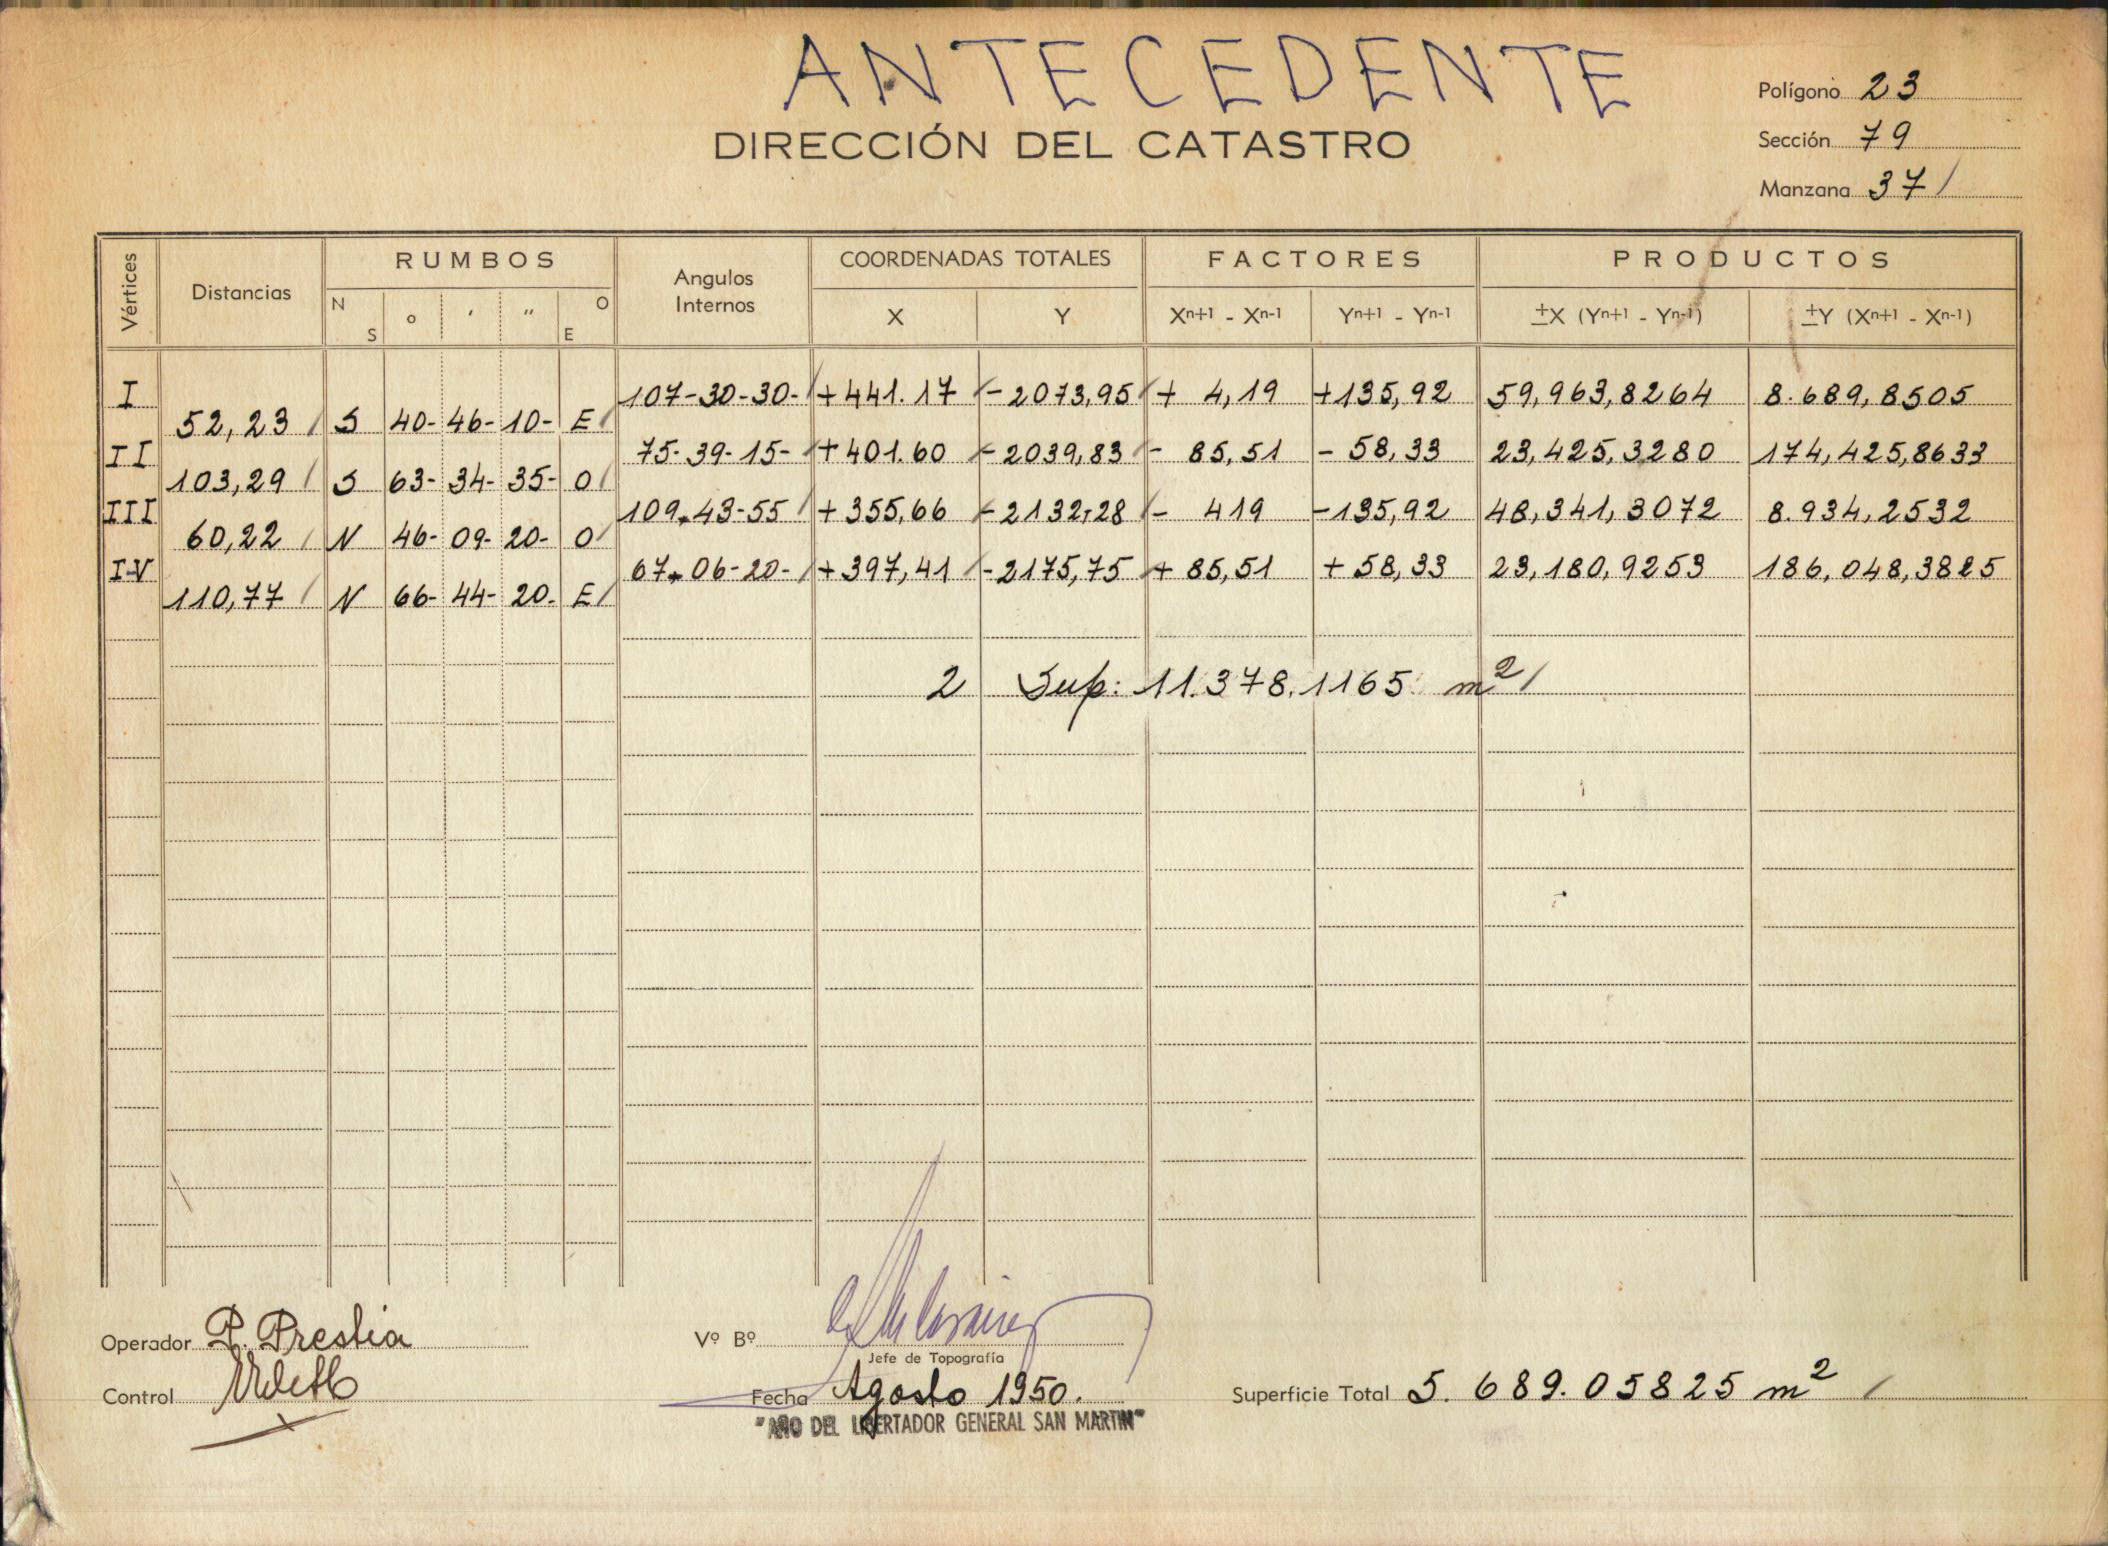 ANTECEDENTE
DIRECCIÓN DEL CATASTRO
Polígono 23
Sección 79
Manzana 37/
Vértices Distancias RUMBOS Angulos Internos COORDENADAS TOTALES FACTORES PRODUCTOS
N S ° ' " O E X Y Xn+1 - Xn-1 Yn+1 - Yn-1 ±X (Yn+1 - Yn-1) ±Y (Xn+1 - Xn-1)
I 107-30-30- +441.17 -2073,95 + 4,19 +135,92 59,963,8264 8.689,8505
52,23 S 40- 46- 10- E
II 75-39-15- +401.60 -2039,83 - 85,51 - 58,33 23,425,3280 174,425,8633
103,29 S 63- 34- 35- O
III 109-43-55 +355,66 -2132,28 - 419 -135,92 48,341,3072 8.934,2532
60,22 N 46- 09- 20- O
IV 67-06-20- +397,41 -2175,75 + 85,51 + 58,33 23,180,9253 186,048,3825
110,77 N 66- 44- 20- E
2 Sup: 11.378.1165 m²/
Operador P. Prestia
Control
Vº Bº
Jefe de Topografía
Fecha Agosto 1950.
"AÑO DEL LIBERTADOR GENERAL SAN MARTIN"
Superficie Total 5.689.05825 m² /